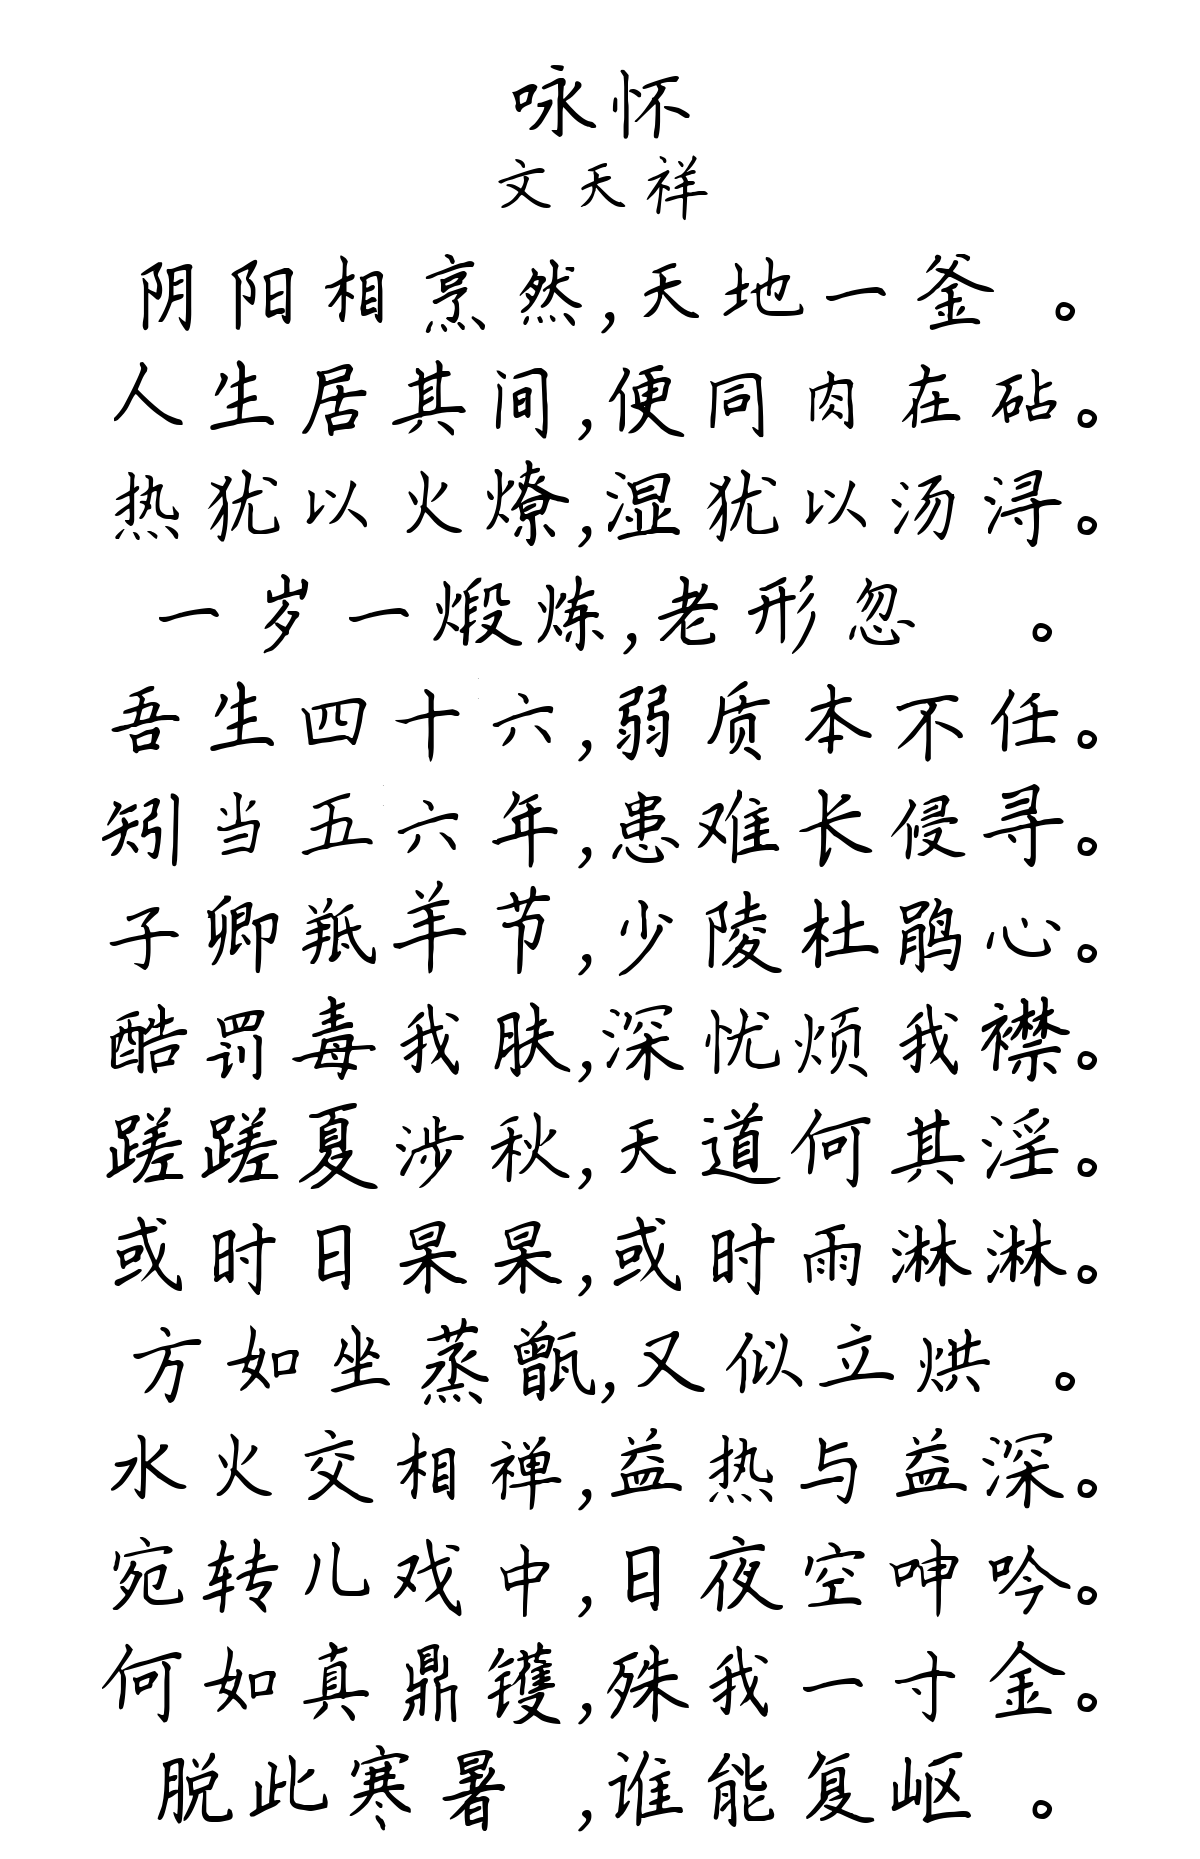 咏怀
文天祥
阴阳相烹然,天地一釜 。
人生居其间,便同肉在砧。
热犹以火燎,湿犹以汤浔。
一岁一煅炼,老形忽 。
吾生四十六,弱质本不任。
矧当五六年,患难长侵寻。
子卿羝羊节,少陵杜鹃心。
酷罚毒我肤,深忧烦我襟。
蹉蹉夏涉秋,天道何其淫。
或时日杲杲,或时雨淋淋。
方如坐蒸甑,又似立烘 。
水火交相禅,益热与益深。
宛转儿戏中,日夜空呻吟。
何如真鼎镬,殊我一寸金。
脱此寒暑 ,谁能复岖 。